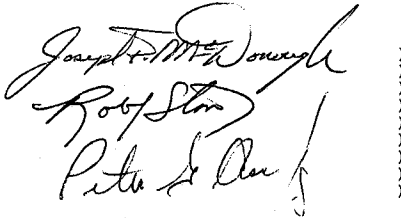 Joseph P. McDonough
Rob Stone
Peter G.